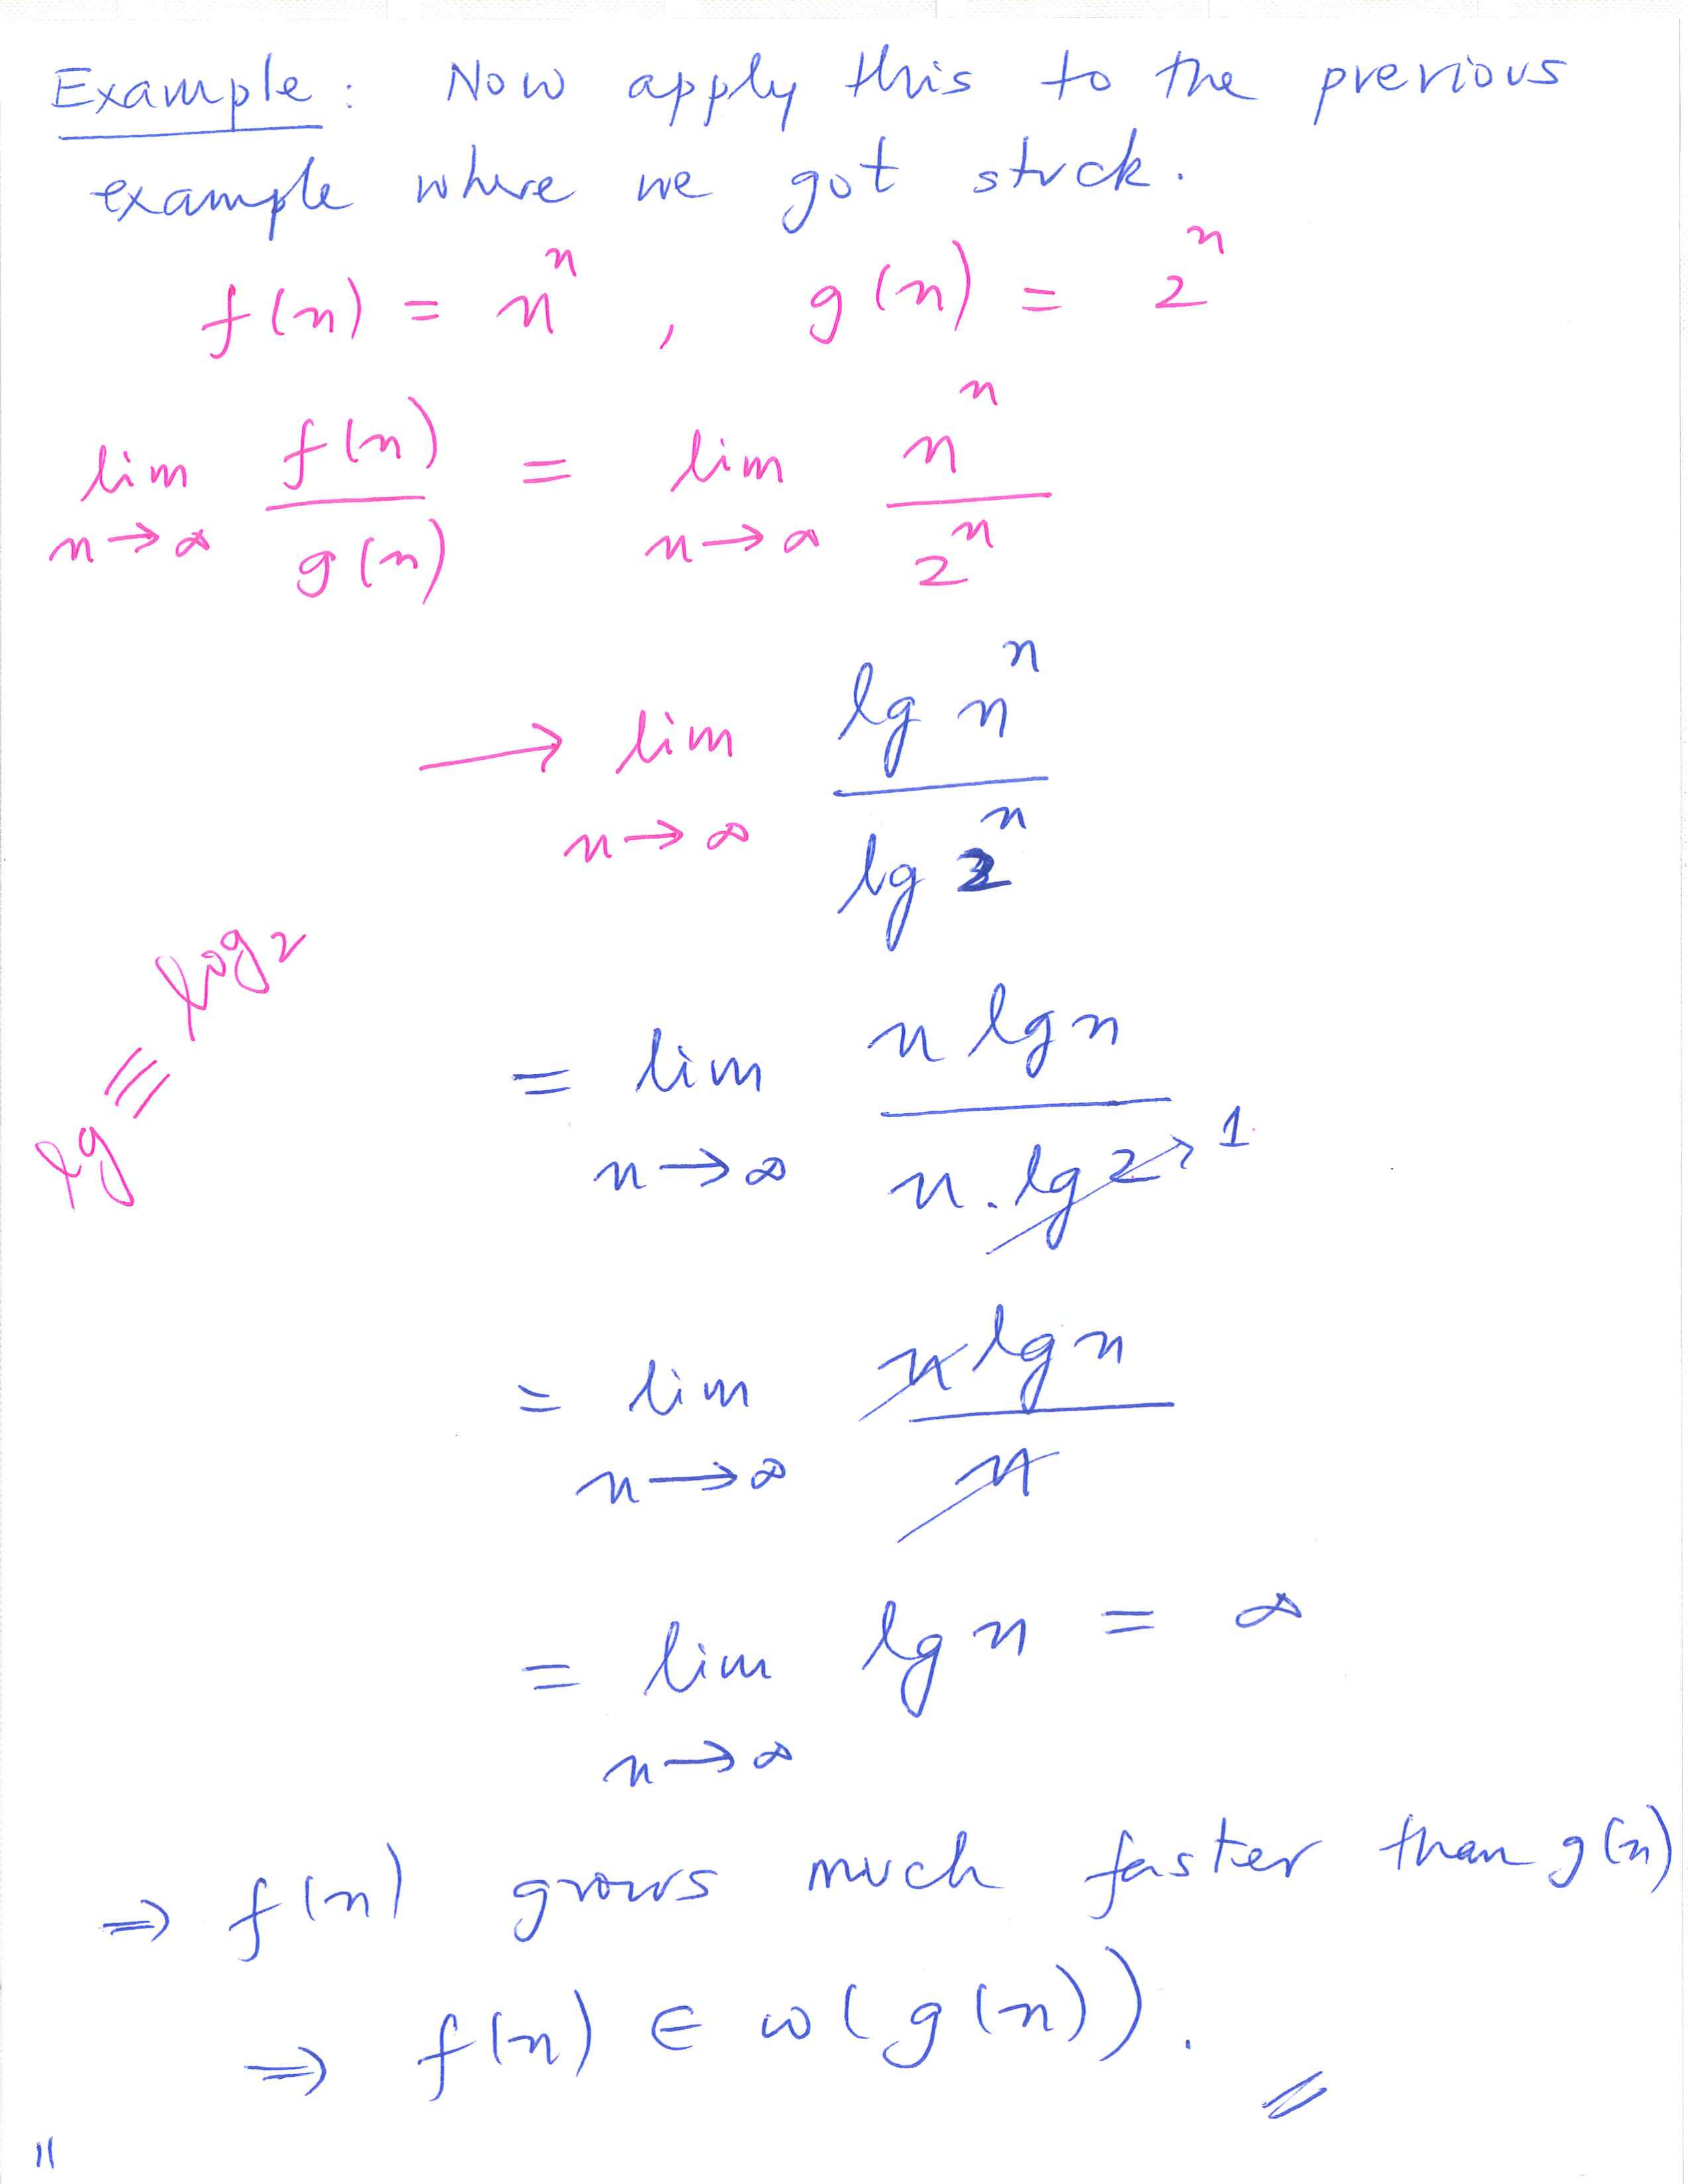 Example: Now apply this to the previous
example where we got stuck.
f(n) = n^n , g(n) = 2^n
lim n→∞ f(n)/g(n) = lim n→∞ n^n/2^n
→ lim n→∞ lg n^n / lg 2^n
lg ≡ log₂
= lim n→∞ n lg n / n. lg 2 → 1
= lim n→∞ n lg n / n
= lim n→∞ lg n = ∞
⇒ f(n) grows much faster than g(n)
⇒ f(n) ∈ ω(g(n)).
11